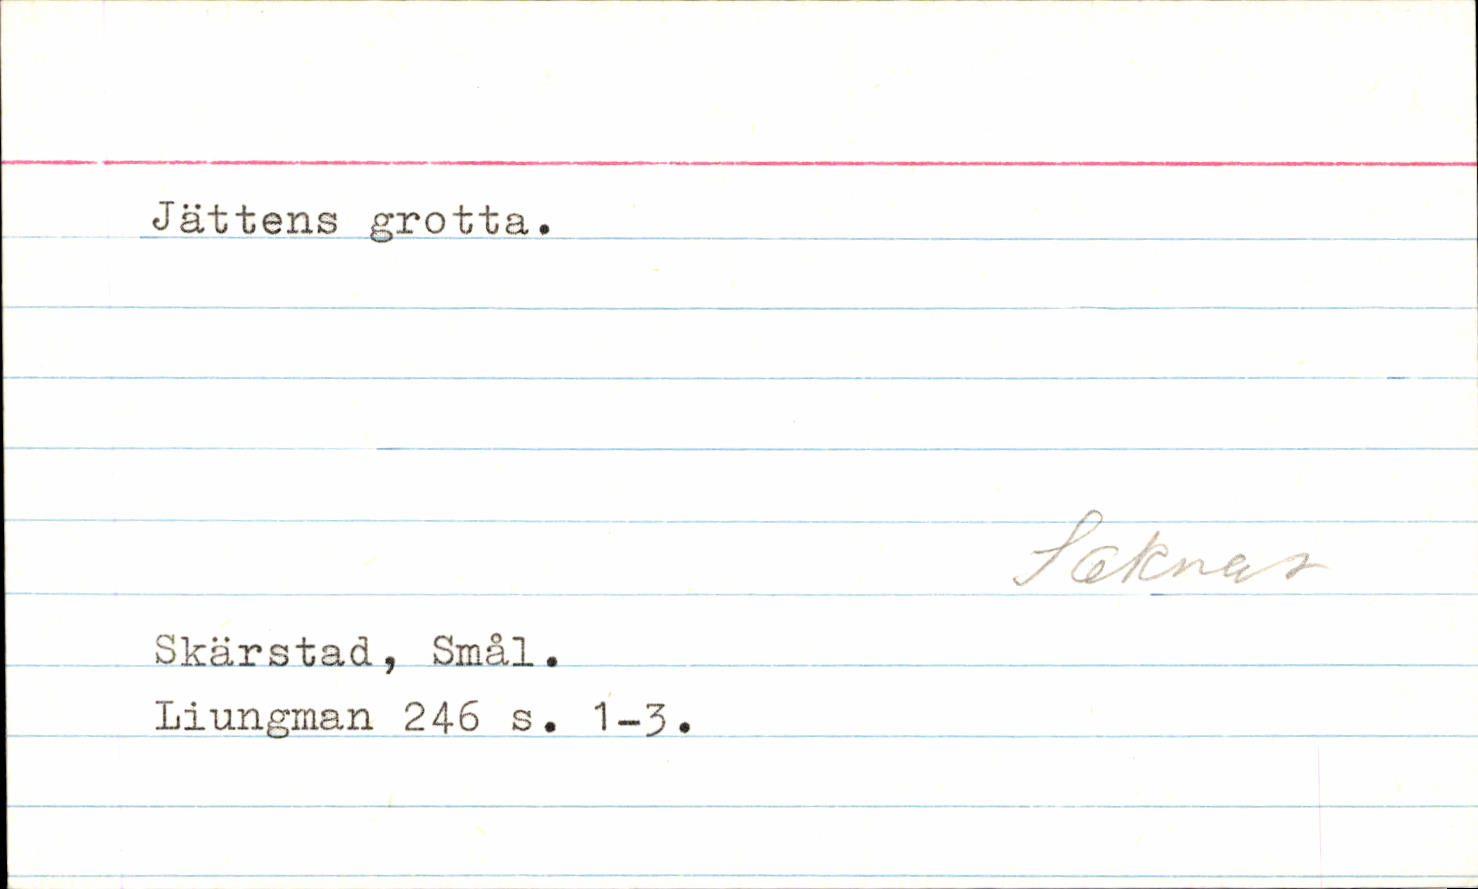 Jättens grotta.
Saknas
Skärstad, Smål.
Liungman 246 s. 1-3.